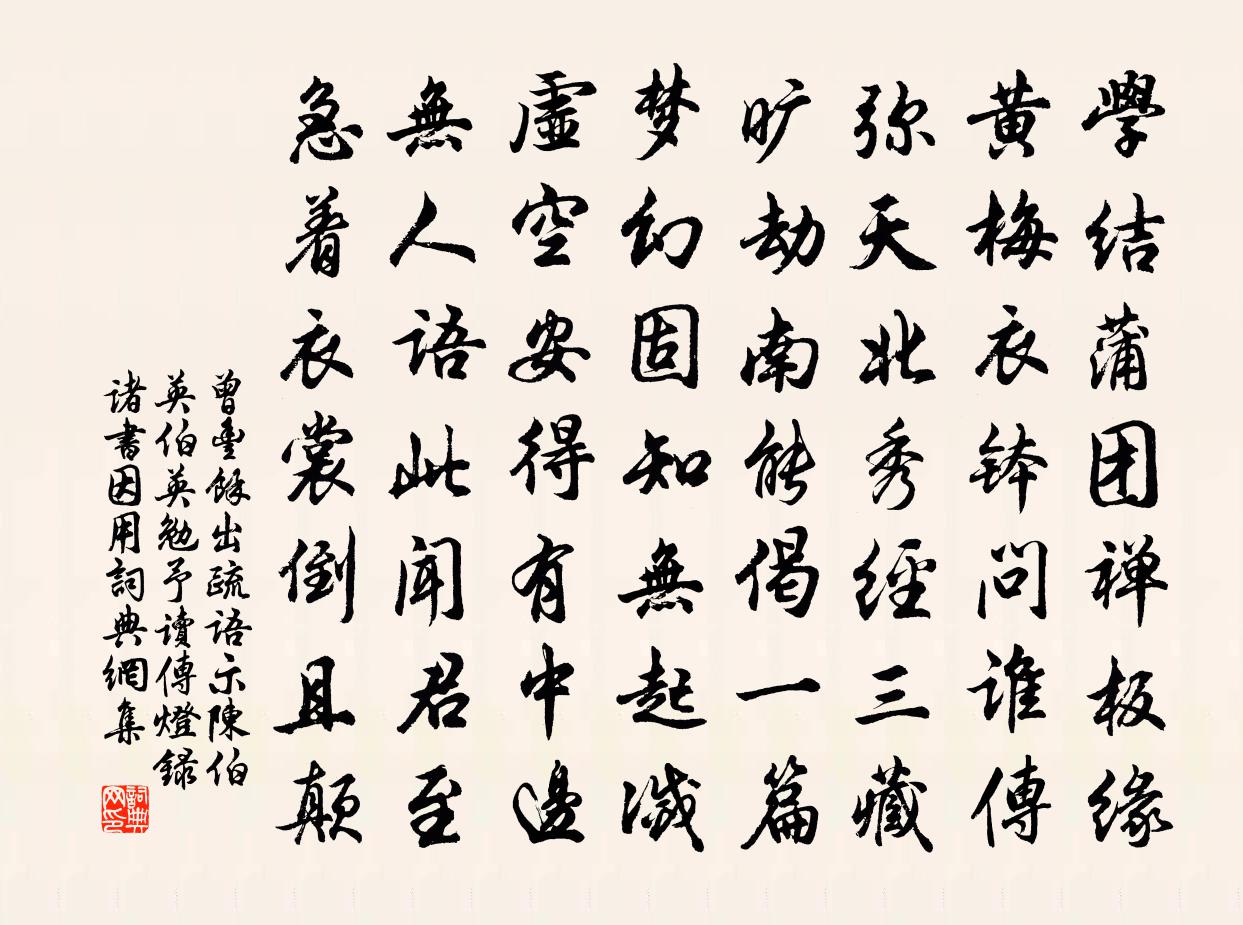 學结蒲团禅板缘
黄梅衣钵问谁傳
弥天北秀經三藏
旷劫南能偈一篇
梦幻固知無起滅
虚空安得有中邊
無人語此闻君至
急着衣裳倒且颠
曾豐餘出疏语示陳伯
英伯英勉予讀傳燈録
诸書因用詞典網集
詞典网印